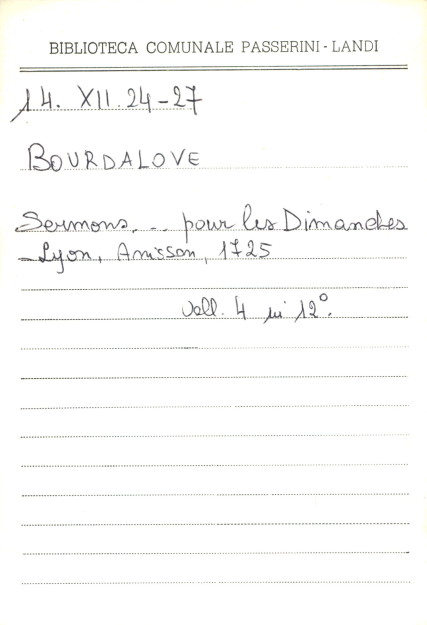 BIBLIOTECA COMUNALE PASSERINI - LANDI
14. XII. 24-27
BOURDALOVE
Sermons, .. pour les Dimanches
- Lyon, Anisson, 1725
Voll. 4 in 12°.